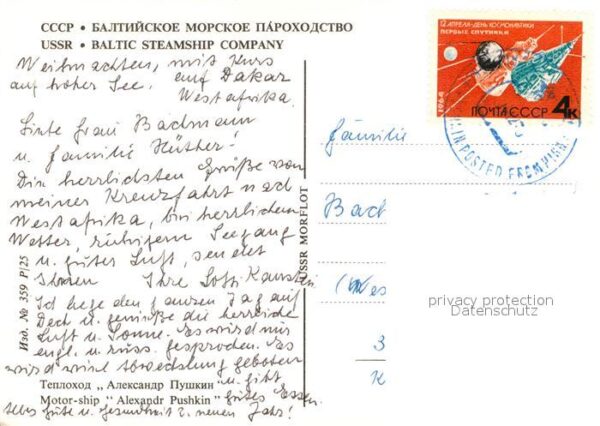 СССР • БАЛТИЙСКОЕ МОРСКОЕ ПАРОХОДСТВО
USSR • BALTIC STEAMSHIP COMPANY
Weihnachten, mit Kurs
auf hoher See. auf Dakar
Westafrika.
Liebe Frau Bachmann
u. Familie Hütter!
Die herrlichsten Grüße von
meiner Kreuzfahrt nach
Westafrika, bei herrlichem
Wetter, ruhigem Seegang
u. guter Luft, sendet
Ihnen Ihre Lotti
Ich liege den ganzen Tag auf
Deck u. genieße die herrliche
Luft u. Sonne. Es wird nur
engl. u. russ. gesprochen. Es
wird viel Abwechslung geboten
u. gibt
gutes Essen.
Alles Gute u. Gesundheit z. neuen Jahr!
Теплоход „Александр Пушкин"
Motor-ship "Alexandr Pushkin"
Изд. № 359 Р/25
USSR MORFLOT
12 АПРЕЛЯ-ДЕНЬ КОСМОНАВТИКИ
ПЕРВЫЕ СПУТНИКИ
1964
ПОЧТА СССР 4к
POSTED FROM HIGH
Familie
Bach
(Wes
3
K
privacy protection
Datenschutz